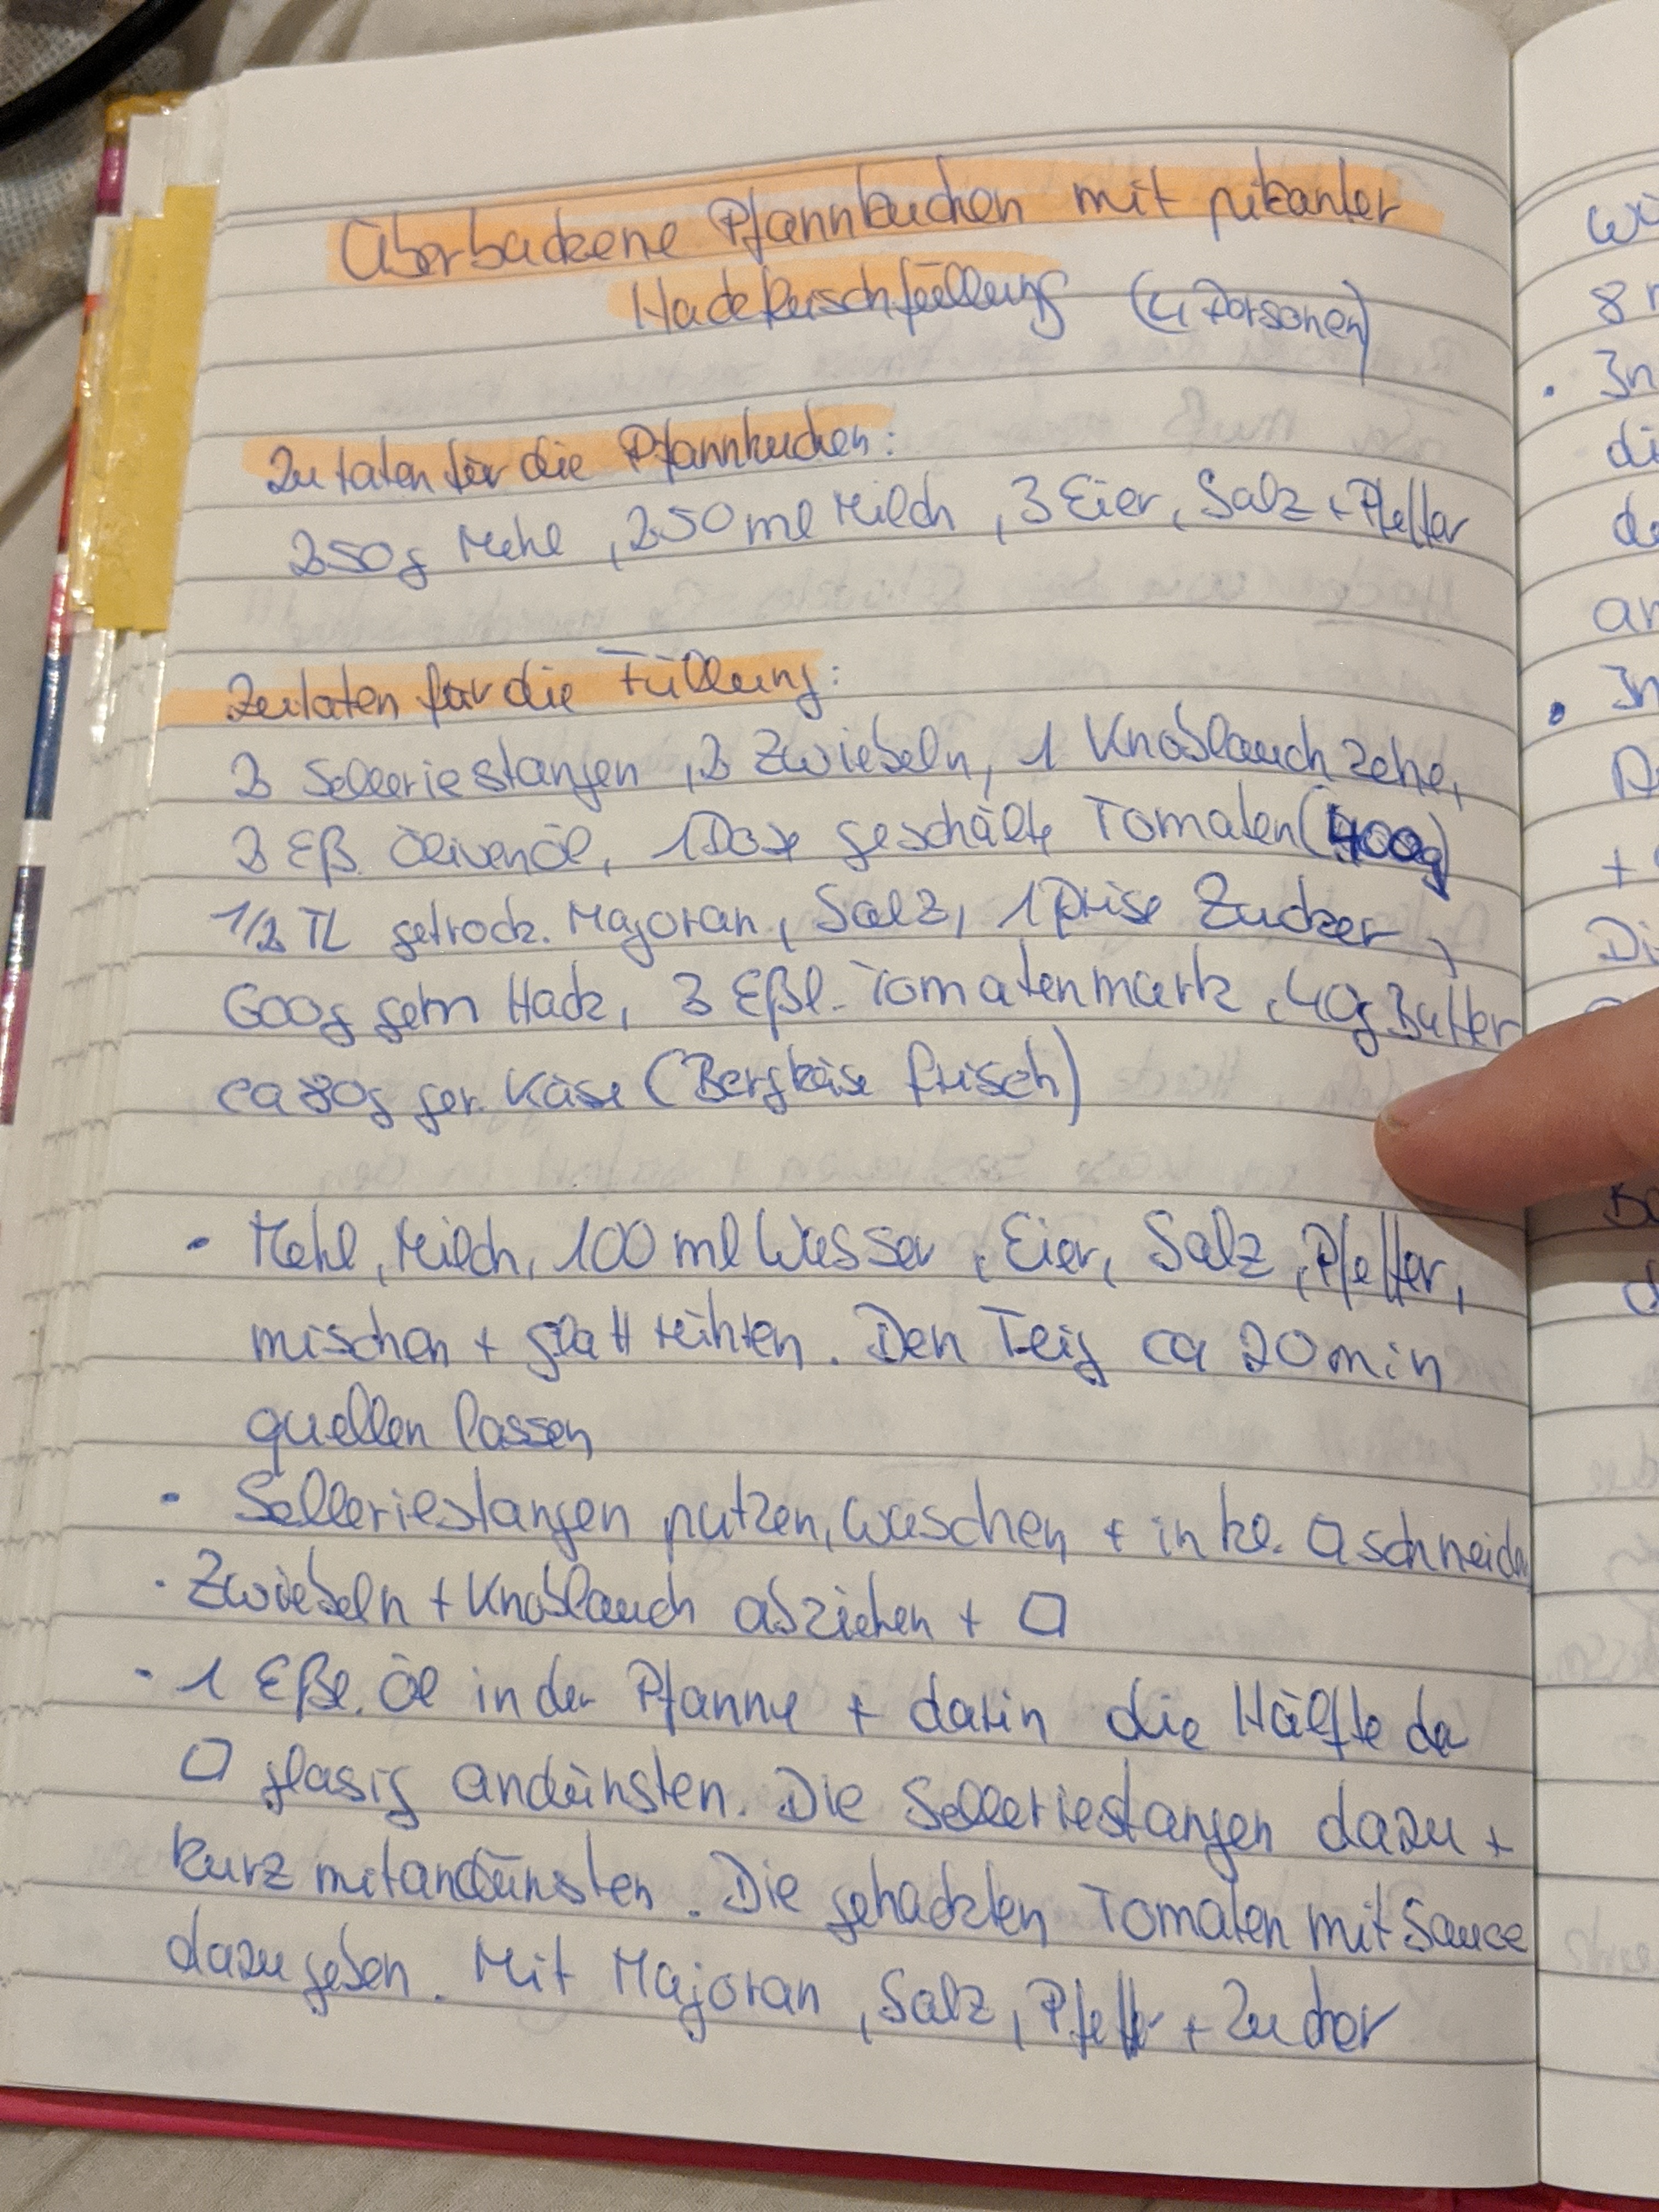 Überbackene Pfannkuchen mit pikanter
Hackfleischfüllung (4 Personen)
Zutaten für die Pfannkuchen:
250g Mehl, 250 ml Milch, 3 Eier, Salz + Pfeffer
Zutaten für die Füllung:
2 Selleriestangen, 2 Zwiebeln, 1 Knoblauchzehe,
2 Eßl. Olivenöl, 1 Dose geschälte Tomaten (400g)
1/2 TL getrock. Majoran, Salz, 1 Prise Zucker,
600g gem Hack, 3 Eßl. Tomatenmark, 40g Butter
ca 80g ger. Käse (Bergkäse frisch)
• Mehl, Milch, 100 ml Wasser, Eier, Salz, Pfeffer,
mischen + glatt rühren. Den Teig ca 20 min
quellen lassen
• Selleriestangen putzen, waschen + in kl. □ schneiden
• Zwiebeln + Knoblauch abziehen + □
• 1 Eßl. Öl in der Pfanne + darin die Hälfte der
□ glasig andünsten. Die Selleriestangen dazu +
kurz mitandünsten. Die gehackten Tomaten mit Sauce
dazu geben. Mit Majoran, Salz, Pfeffer + Zucker
8
• In
di
+
Di